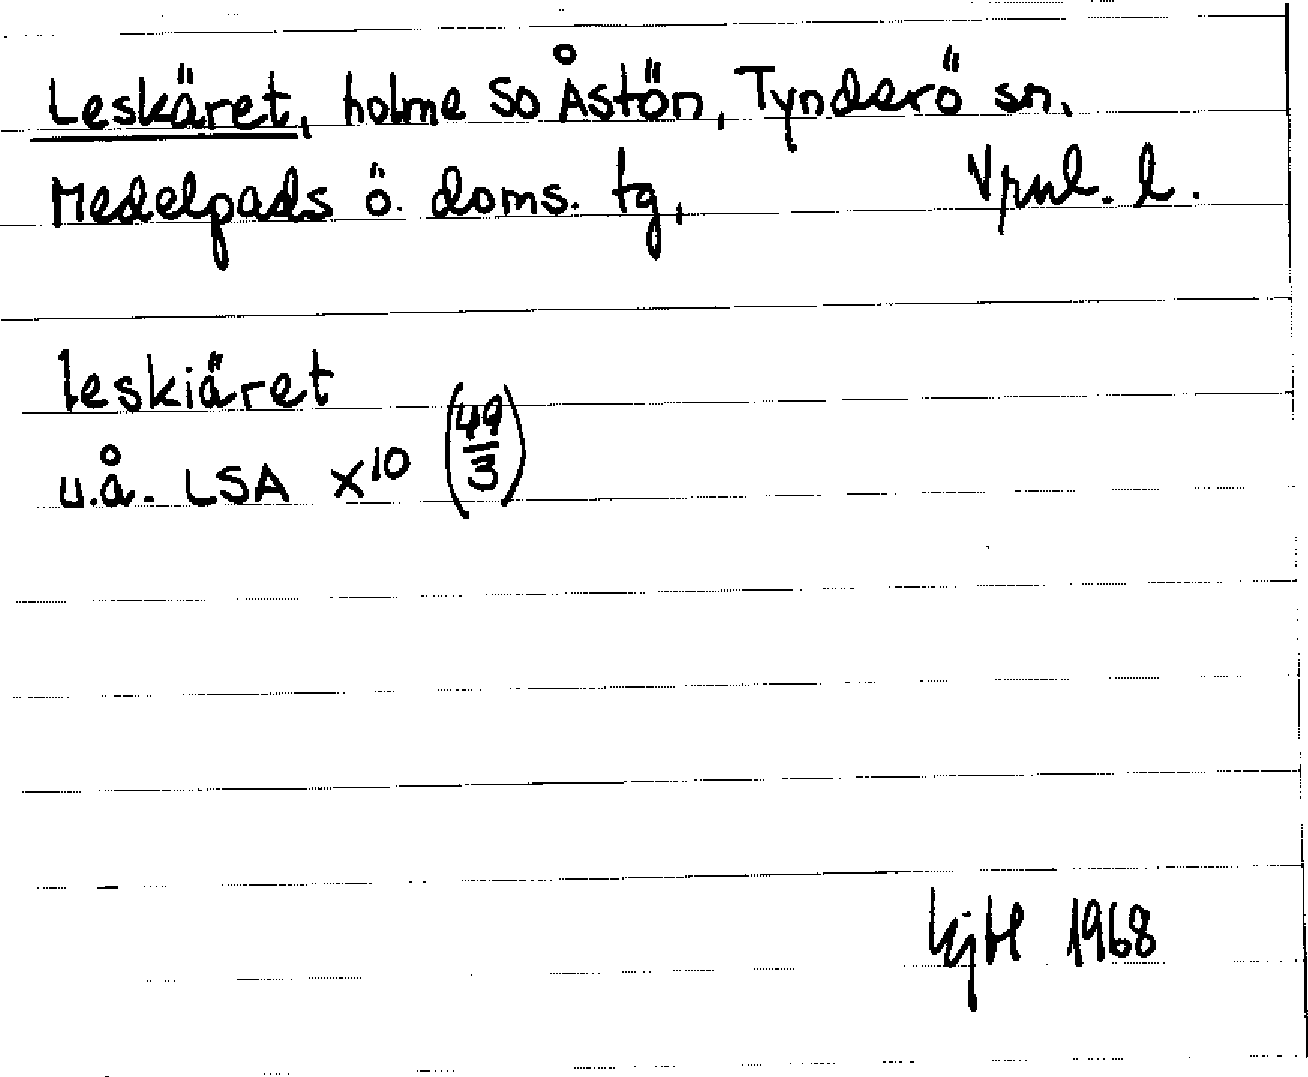 Leskäret, holme SO Åstön, Tynderö sn.
Medelpads ö. doms. tg, Vrnl. l.
leskiäret
u.å. LSA X10 (49/3)
KjH 1968